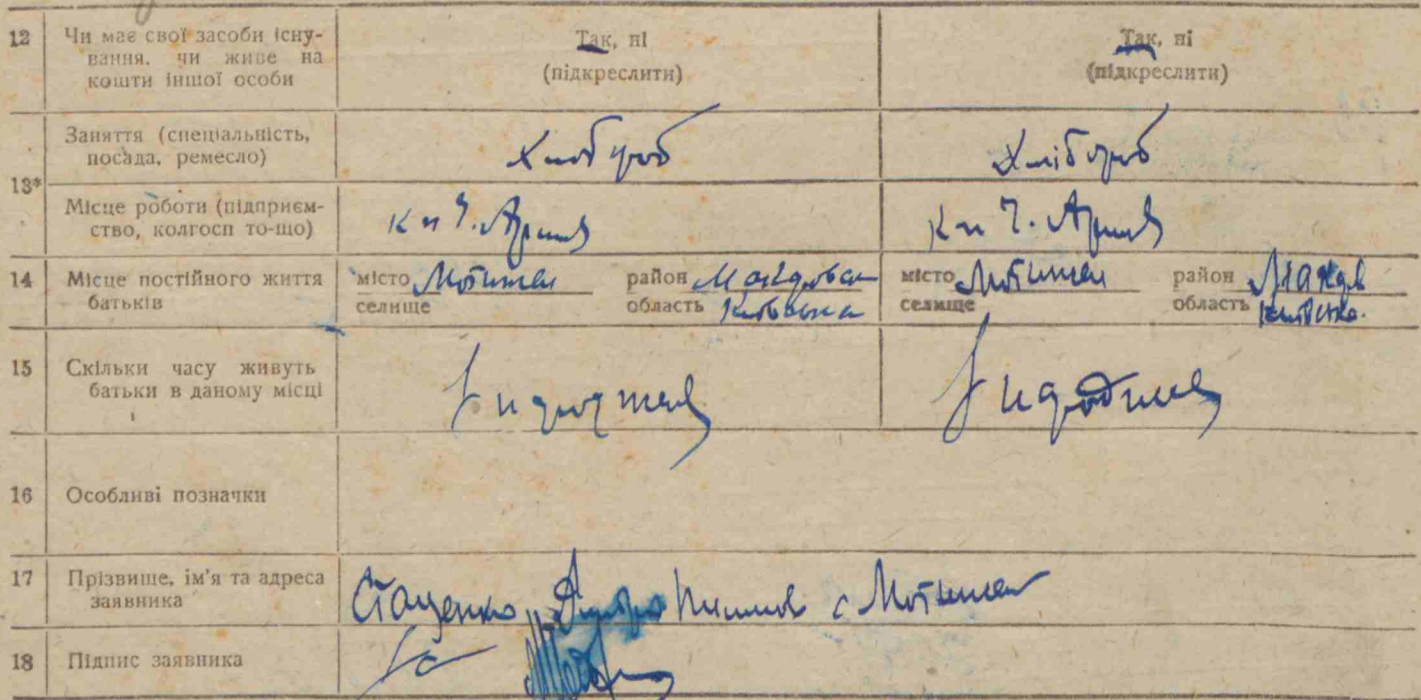 12 Чи має свої засоби існу-
вання, чи живе на
кошти іншої особи
Так, ні
(підкреслити)
Так, ні
(підкреслити)
13*
Заняття (спеціальність,
посада, ремесло)
Хлібороб
Хлібороб
Місце роботи (підприєм-
ство, колгосп то-що)
к-п Ч. Армія
к-п Ч. Армія
14 Місце постійного життя
батьків
місто Мотижин район
селище область Київська
місто Мотижин район
селище область Київська
15 Скільки часу живуть
батьки в даному місці
16 Особливі позначки
17 Прізвище, ім'я та адреса
заявника
Стаценко Дмитро с Мотижин
18 Підпис заявника